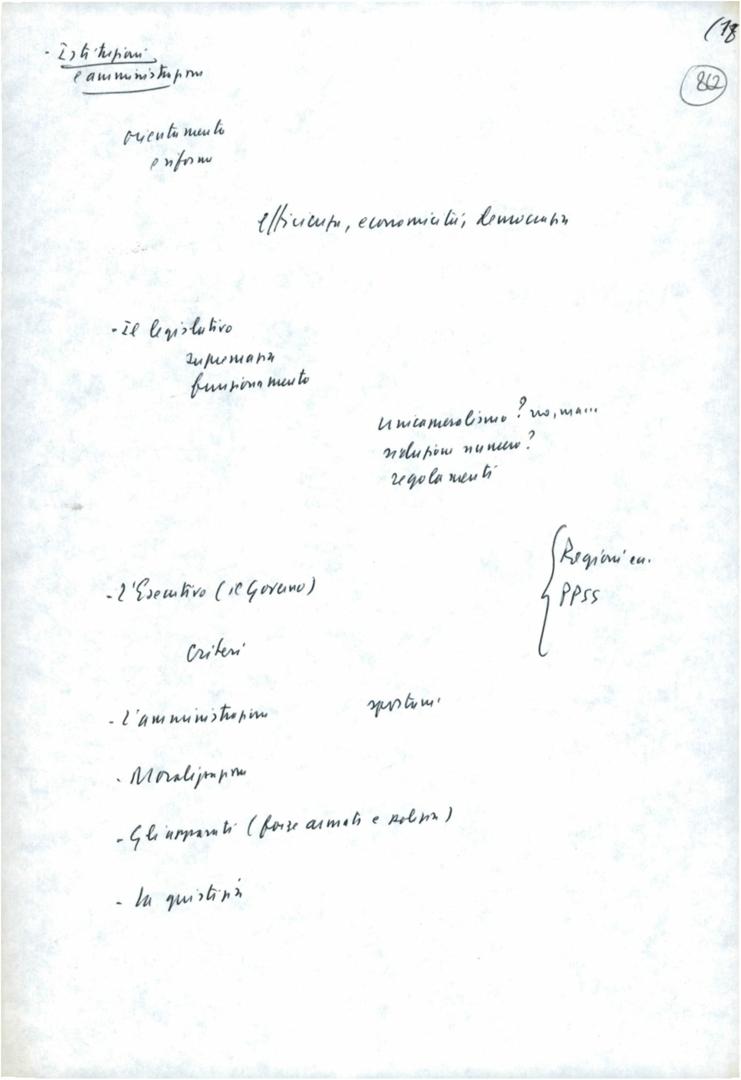 (18
862
- Istituzioni
e amministrazione
orientamento
e riforme
efficienza, economicità, democrazia
- Il legislativo
supremazia
funzionamento
unicameralismo? no, ma...
riduzione numero?
regolamenti
Regioni
PPSS
- L'Esecutivo (il Governo)
criteri
- L'amministrazione
- Moralizzazione
- Gli apparati (forze armate e polizia)
- La giustizia